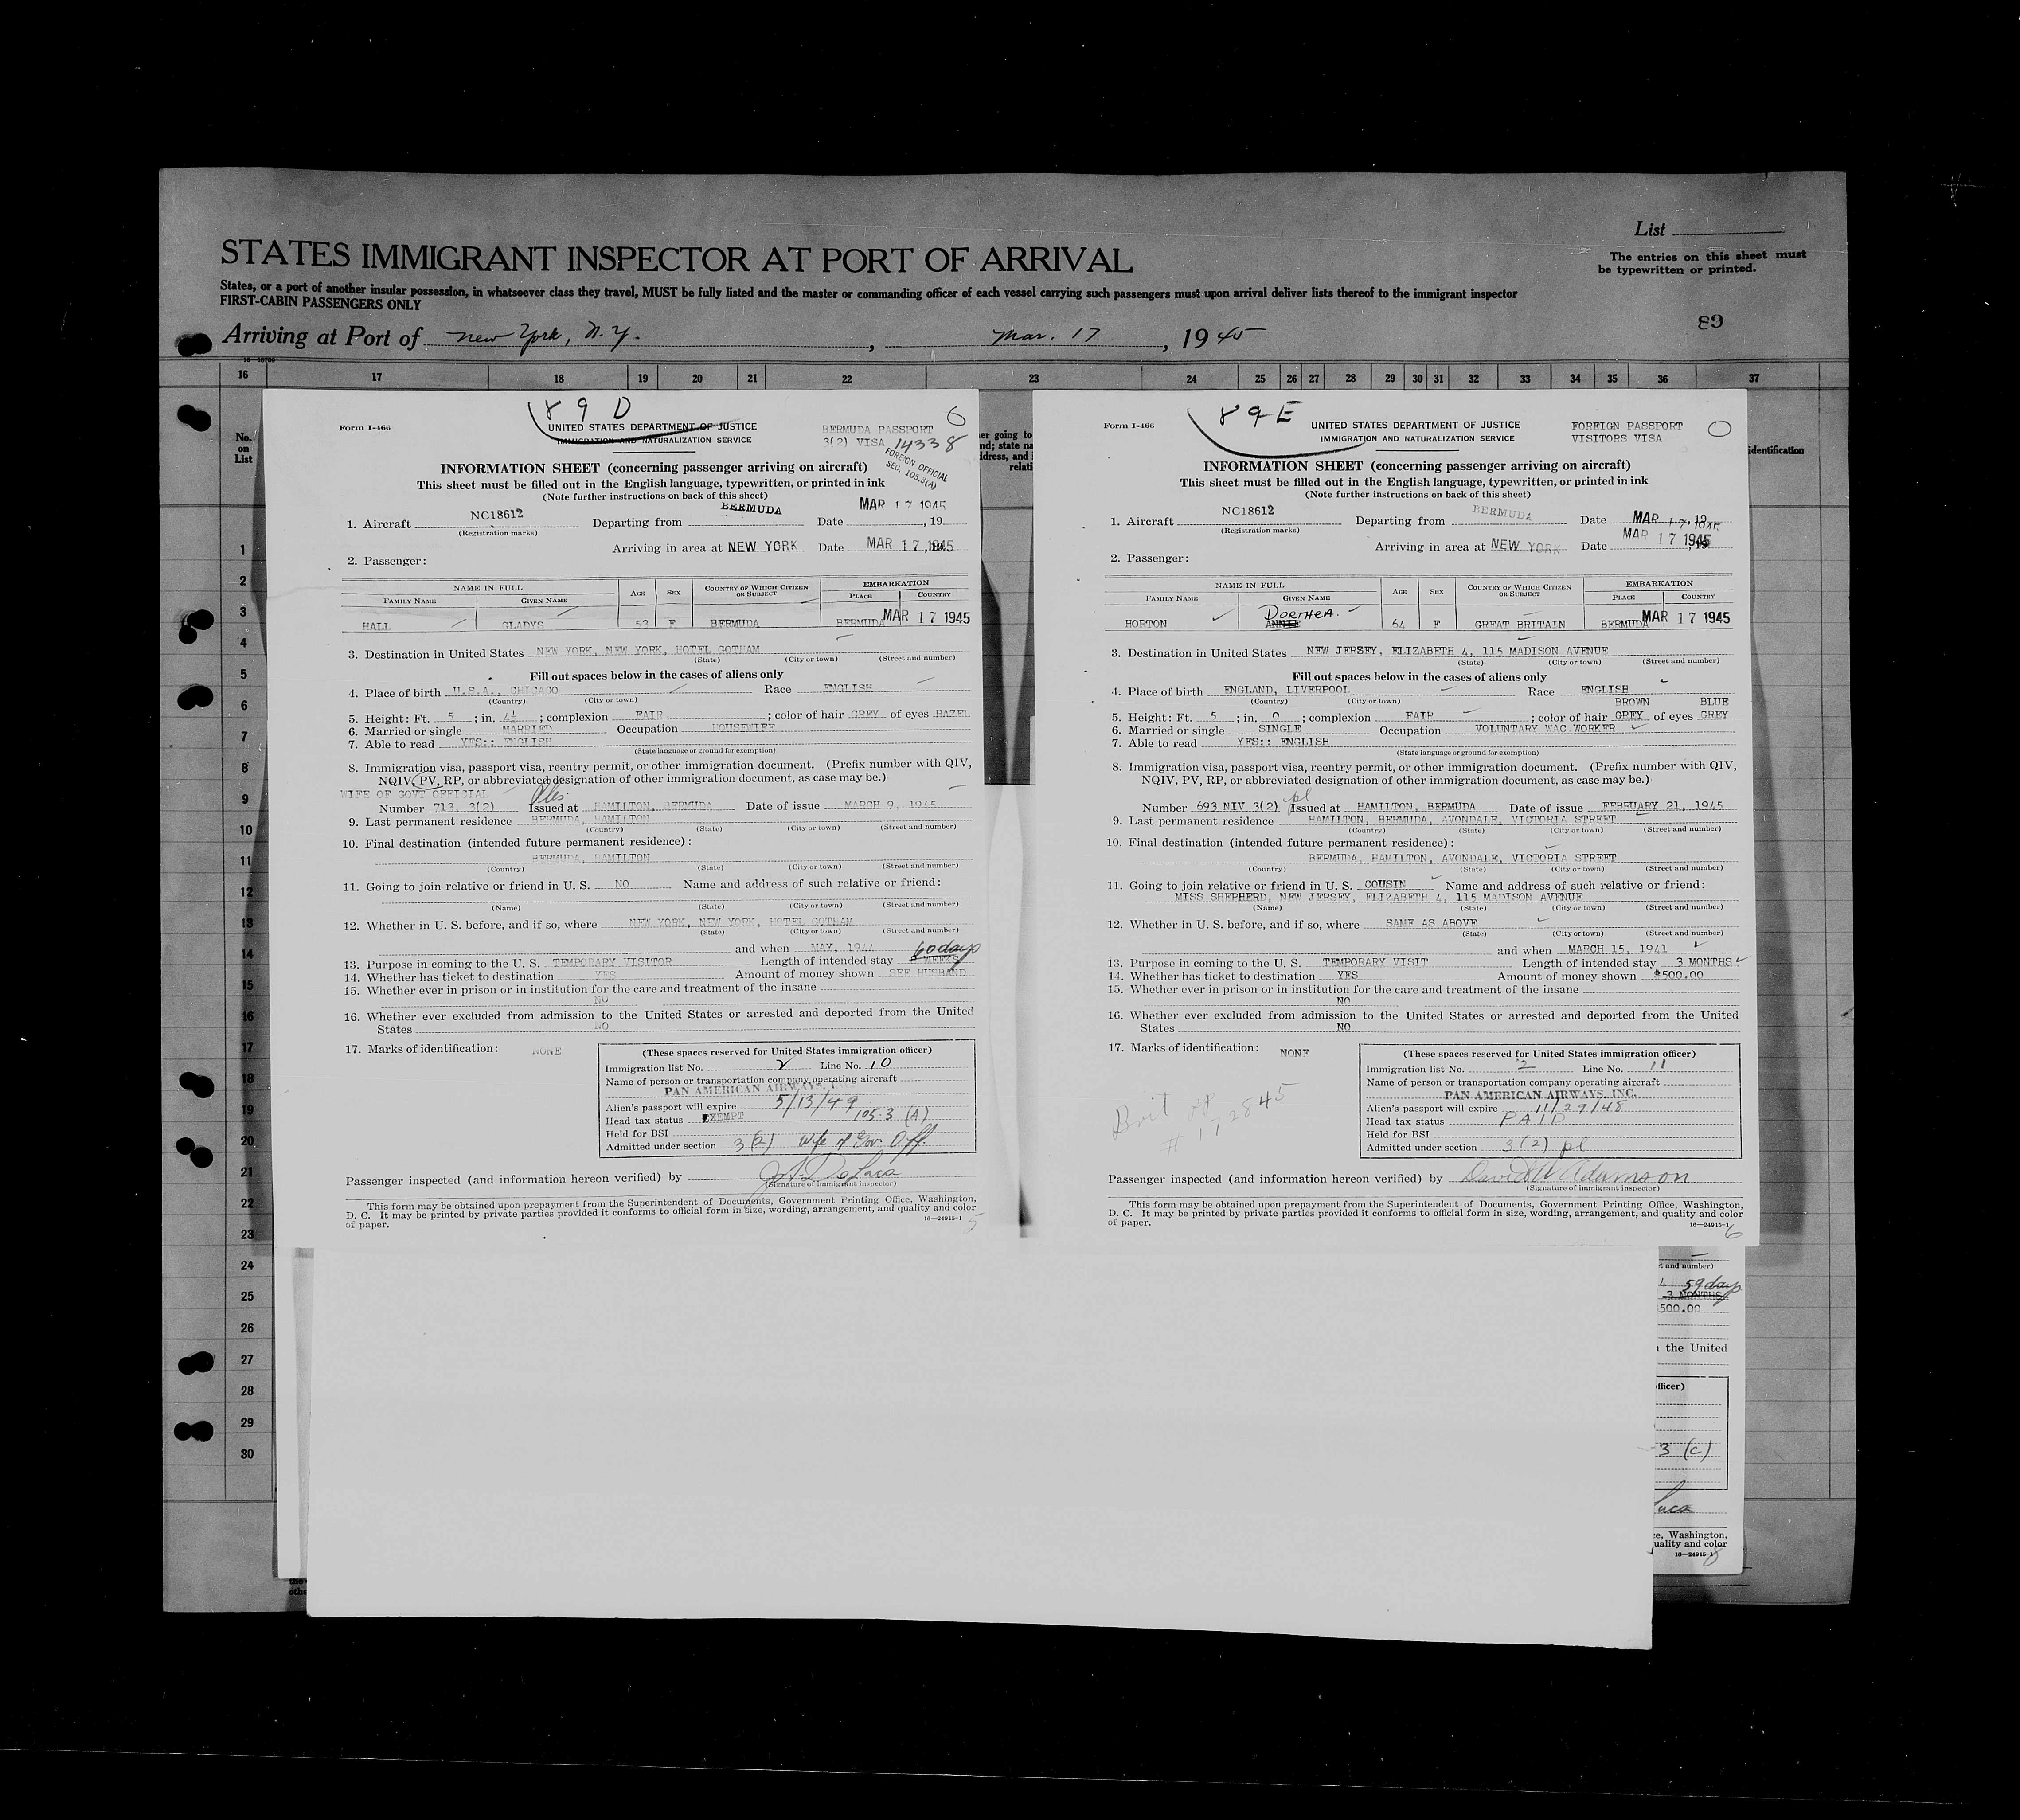 List
The entries on this sheet must
be typewritten or printed.
STATES IMMIGRANT INSPECTOR AT PORT OF ARRIVAL
States, or a port of another insular possession, in whatsoever class they travel, MUST be fully listed and the master or commanding officer of each vessel carrying such passengers must upon arrival deliver lists thereof to the immigrant inspector
FIRST-CABIN PASSENGERS ONLY
89
Arriving at Port of New York, N.Y., Mar. 17, 1945
16 17 18 19 20 21 22 23 24 25 26 27 28 29 30 31 32 33 34 35 36 37
No.
on
List
identification
1
2
3
4
5
6
7
8
9
10
11
12
13
14
15
16
17
18
19
20
21
22
23
24
25
26
27
28
29
30
89 D
6
Form I-466
UNITED STATES DEPARTMENT OF JUSTICE
IMMIGRATION AND NATURALIZATION SERVICE
BERMUDA PASSPORT
3(2) VISA 14338
FOREIGN OFFICIAL
SEC. 105.3(A)
INFORMATION SHEET (concerning passenger arriving on aircraft)
This sheet must be filled out in the English language, typewritten, or printed in ink
(Note further instructions on back of this sheet)
1. Aircraft NC18612 Departing from BERMUDA Date MAR 17 1945, 19
(Registration marks)
Arriving in area at NEW YORK Date MAR 17, 1945
2. Passenger:
NAME IN FULL AGE SEX COUNTRY OF WHICH CITIZEN OR SUBJECT EMBARKATION
FAMILY NAME GIVEN NAME PLACE COUNTRY
HALL GLADYS 53 F BERMUDA BERMUDA MAR 17 1945
3. Destination in United States NEW YORK, NEW YORK, HOTEL GOTHAM
(State) (City or town) (Street and number)
Fill out spaces below in the cases of aliens only
4. Place of birth U.S.A., CHICAGO Race ENGLISH
(Country) (City or town)
5. Height: Ft. 5; in. 4½; complexion FAIR; color of hair GREY of eyes HAZEL
6. Married or single MARRIED Occupation HOUSEWIFE
7. Able to read YES:: ENGLISH
(State language or ground for exemption)
8. Immigration visa, passport visa, reentry permit, or other immigration document. (Prefix number with QIV,
NQIV, PV, RP, or abbreviated designation of other immigration document, as case may be.)
WIFE OF GOVT OFFICIAL
Number 713, 3(2) Issued at HAMILTON, BERMUDA Date of issue MARCH 9, 1945
9. Last permanent residence BERMUDA, HAMILTON
(Country) (State) (City or town) (Street and number)
10. Final destination (intended future permanent residence):
BERMUDA, HAMILTON
(Country) (State) (City or town) (Street and number)
11. Going to join relative or friend in U. S. NO Name and address of such relative or friend:
(Name) (State) (City or town) (Street and number)
12. Whether in U. S. before, and if so, where NEW YORK, NEW YORK, HOTEL GOTHAM
(State) (City or town) (Street and number)
and when MAY, 1944 60 days
13. Purpose in coming to the U. S. TEMPORARY VISITOR Length of intended stay WEEKS
14. Whether has ticket to destination YES Amount of money shown SEE HUSBAND
15. Whether ever in prison or in institution for the care and treatment of the insane
NO
16. Whether ever excluded from admission to the United States or arrested and deported from the United
States NO
17. Marks of identification: NONE
(These spaces reserved for United States immigration officer)
Immigration list No. 2 Line No. 10
Name of person or transportation company operating aircraft
PAN AMERICAN AIRWAYS,
Alien's passport will expire 5/13/49
Head tax status EXEMPT 105.3 (A)
Held for BSI
Admitted under section 3(2) wife of Gov. Off.
Passenger inspected (and information hereon verified) by
(Signature of immigrant inspector)
This form may be obtained upon prepayment from the Superintendent of Documents, Government Printing Office, Washington,
D. C. It may be printed by private parties provided it conforms to official form in size, wording, arrangement, and quality and color
of paper.
16—24915-1
5
89E
Form I-466
UNITED STATES DEPARTMENT OF JUSTICE
IMMIGRATION AND NATURALIZATION SERVICE
FOREIGN PASSPORT
VISITORS VISA
INFORMATION SHEET (concerning passenger arriving on aircraft)
This sheet must be filled out in the English language, typewritten, or printed in ink
(Note further instructions on back of this sheet)
1. Aircraft NC18612 Departing from BERMUDA Date MAR 17 1945, 19
(Registration marks)
Arriving in area at NEW YORK Date MAR 17 1945
2. Passenger:
NAME IN FULL AGE SEX COUNTRY OF WHICH CITIZEN OR SUBJECT EMBARKATION
FAMILY NAME GIVEN NAME PLACE COUNTRY
DORTHEA.
HORTON ANNIE 64 F GREAT BRITAIN BERMUDA MAR 17 1945
3. Destination in United States NEW JERSEY, ELIZABETH 4, 115 MADISON AVENUE
(State) (City or town) (Street and number)
Fill out spaces below in the cases of aliens only
4. Place of birth ENGLAND, LIVERPOOL Race ENGLISH
(Country) (City or town)
BROWN BLUE
5. Height: Ft. 5; in. 0; complexion FAIR; color of hair GREY of eyes GREY
6. Married or single SINGLE Occupation VOLUNTARY WAC WORKER
7. Able to read YES:: ENGLISH
(State language or ground for exemption)
8. Immigration visa, passport visa, reentry permit, or other immigration document. (Prefix number with QIV,
NQIV, PV, RP, or abbreviated designation of other immigration document, as case may be.)
pl
Number 693 NIV 3(2) Issued at HAMILTON, BERMUDA Date of issue FEBRUARY 21, 1945
9. Last permanent residence HAMILTON, BERMUDA, AVONDALE, VICTORIA STREET
(Country) (State) (City or town) (Street and number)
10. Final destination (intended future permanent residence):
BERMUDA, HAMILTON, AVONDALE, VICTORIA STREET
(Country) (State) (City or town) (Street and number)
11. Going to join relative or friend in U. S. COUSIN Name and address of such relative or friend:
MISS SHEPHERD, NEW JERSEY, ELIZABETH 4, 115 MADISON AVENUE
(Name) (State) (City or town) (Street and number)
12. Whether in U. S. before, and if so, where SAME AS ABOVE
(State) (City or town) (Street and number)
and when MARCH 15, 1941
13. Purpose in coming to the U. S. TEMPORARY VISIT Length of intended stay 3 MONTHS
14. Whether has ticket to destination YES Amount of money shown $500.00
15. Whether ever in prison or in institution for the care and treatment of the insane
NO
16. Whether ever excluded from admission to the United States or arrested and deported from the United
States NO
17. Marks of identification: NONE
(These spaces reserved for United States immigration officer)
Immigration list No. 2 Line No. 11
Name of person or transportation company operating aircraft
PAN AMERICAN AIRWAYS, INC.
Alien's passport will expire 11/29/48
Head tax status PAID
Held for BSI
Admitted under section 3(2) pl
Brit
# 172845
Passenger inspected (and information hereon verified) by David W Adamson
(Signature of immigrant inspector)
This form may be obtained upon prepayment from the Superintendent of Documents, Government Printing Office, Washington,
D. C. It may be printed by private parties provided it conforms to official form in size, wording, arrangement, and quality and color
of paper.
16—24915-1
6
et and number)
59 days
3 MONTHS
500.00
the United
officer)
3 (c)
ce, Washington,
uality and color
16—24915-1